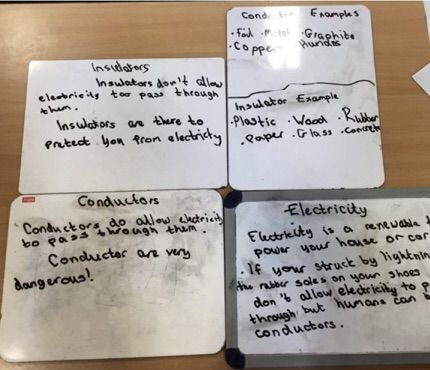 Insulators
Insulators don't allow
electricity too pass through
them.
Insulators are there to
pretect you from electricty
Conductor Examples
• Foil • Metal • Graphite
• Copper • Humides
Insulator Example
• Plastic • Wood • Rubber
• Paper • Glass • Concrete
Conductors
Conductors do allow electricity
to pass through them.
Conductor are very
dangerous!
Electricity
Electricity is a renewable
power your house or car
• If your struck by lightnin
the rubber soles on your shoes
don't allow electricity to p
through but humans can b
conductors.